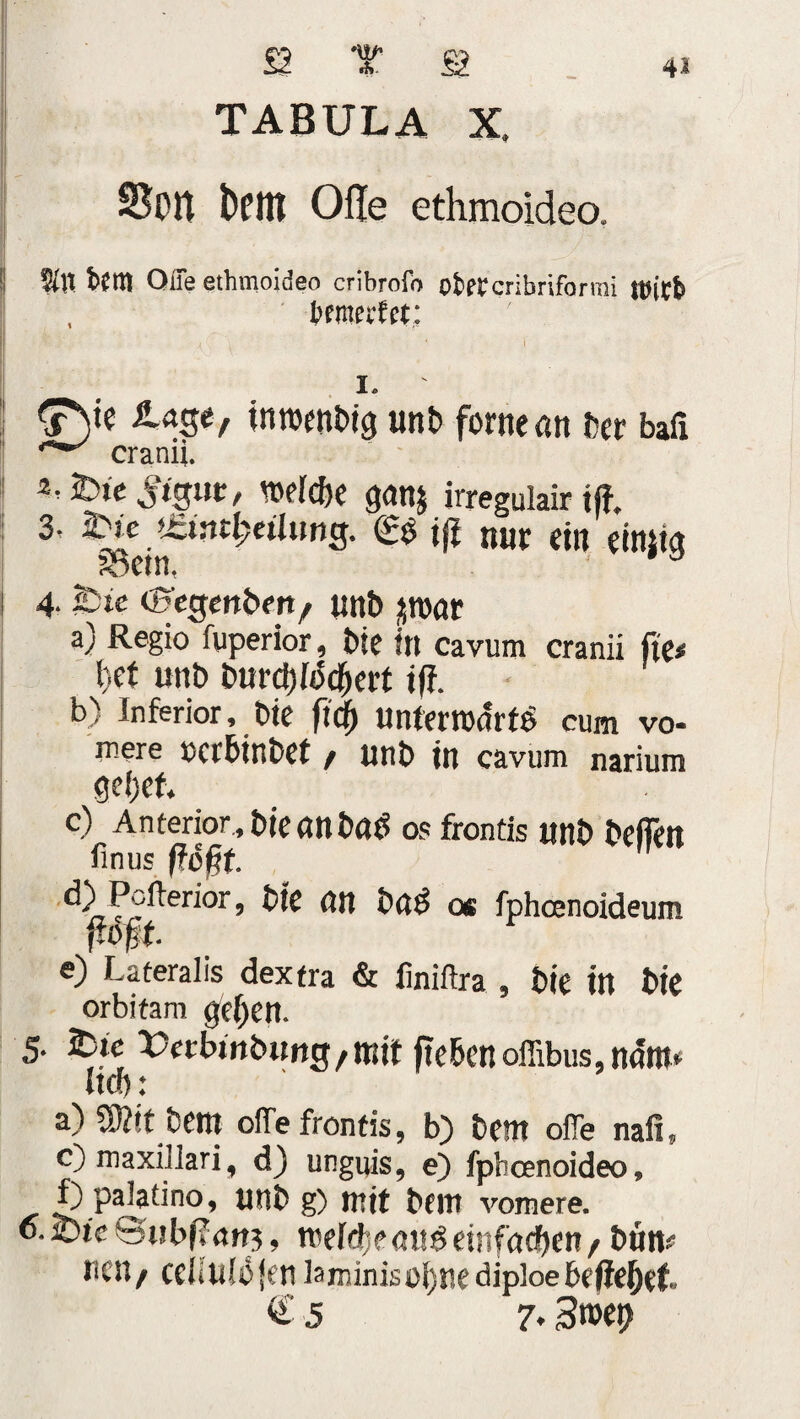 41
TABULA X.
Von dem Osse ethmoideo.
An dem Osse ethmoideo cribroso oder cribriformi wird
bemerket:
1.
Die Lage, inwendig und forne an der basi
cranii.
2. Die Figur, welche ganz irregulair ist.
3. Die Eintheilung. Es ist nur ein einzig
Bein.
4. Die Gegenden, und zwar
a) Regio superior, die in cavum cranii sie-
het und durchlöchert ist.
b) Inferior, die sich unterwärts cum vo-
mere verbindet, und in cavum narium
gehet.
c) Anterior, die an das os frontis und dessen
sinus stößt.
d) Posterior, die an das os sphœnoideum
stößt.
e) Lateralis dextra & sinistra, die in die
orbitam gehen.
5. Die Verbindung, mit sieben ossibus, näm-
lich:
a) Mit dem osse frontis, b) dem osse nasi,
c) maxillari, d) unguis, e) sphœnoideo,
f) palatino, und g) mit dem vomere.
6. Die Substanz, welche aus einfachen, dün-
nen, cellulösen laminis ohne diploe bestehet.
C 5 7. Zwey